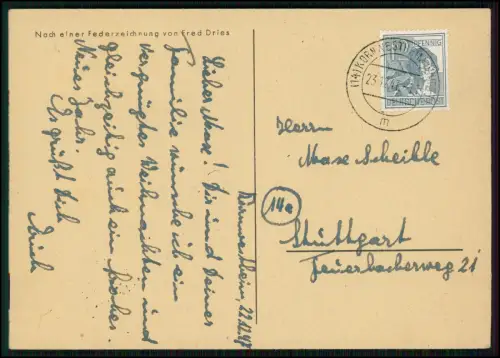 Nach einer Federzeichnung von Fred Dries
Kornwestheim, 22.12.47
Lieber Maxe! Dir und Deiner
Familie wünsche ich ein
vergnügtes Weihnachten und
gleichzeitig auch ein frohes
Neues Jahr.
Es grüßt Dich
Erich
(14a) KORNWESTHEIM
23.12.47
m
PFENNIG
Herrn
Maxe Scheible
14a
Stuttgart
Feuerbacherweg 21